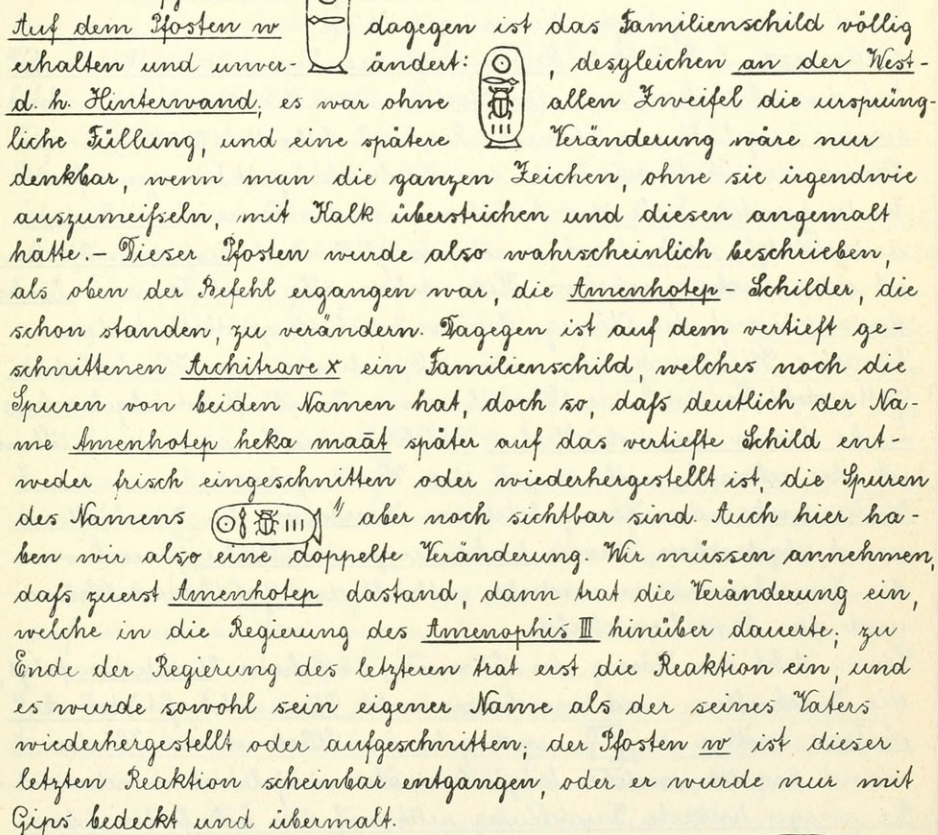 Auf dem Pfosten w dagegen ist das Familienschild völlig
erhalten und unver- ändert: , desgleichen an der West-
d. h. Hinterwand; es war ohne allen Zweifel die ursprüng-
liche Füllung, und eine spätere Veränderung wäre nur
denkbar, wenn man die ganzen Zeichen, ohne sie irgendwie
auszumeifseln, mit Kalk überstrichen und diesen angemalt
hätte.- Dieser Pfosten wurde also wahrscheinlich beschrieben,
als oben der Befehl ergangen war, die Amenhotep - Schilder, die
schon standen, zu verändern. Dagegen ist auf dem vertieft ge-
schnittenen Architrave x ein Familienschild, welches noch die
Spuren von beiden Namen hat, doch so, dafs deutlich der Na-
me Amenhotep heka maāt später auf das vertiefte Schild ent-
weder frisch eingeschnitten oder wiederhergestellt ist, die Spuren
des Namens 1) aber noch sichtbar sind. Auch hier ha-
ben wir also eine doppelte Veränderung. Wir müssen annehmen,
dafs zuerst Amenhotep dastand, dann trat die Veränderung ein,
welche in die Regierung des Amenophis III hinüber dauerte; zu
Ende der Regierung des letzteren trat erst die Reaktion ein, und
es wurde sowohl sein eigener Name als der seines Vaters
wiederhergestellt oder aufgeschnitten; der Pfosten w ist dieser
letzten Reaktion scheinbar entgangen, oder er wurde nur mit
Gips bedeckt und übermalt.